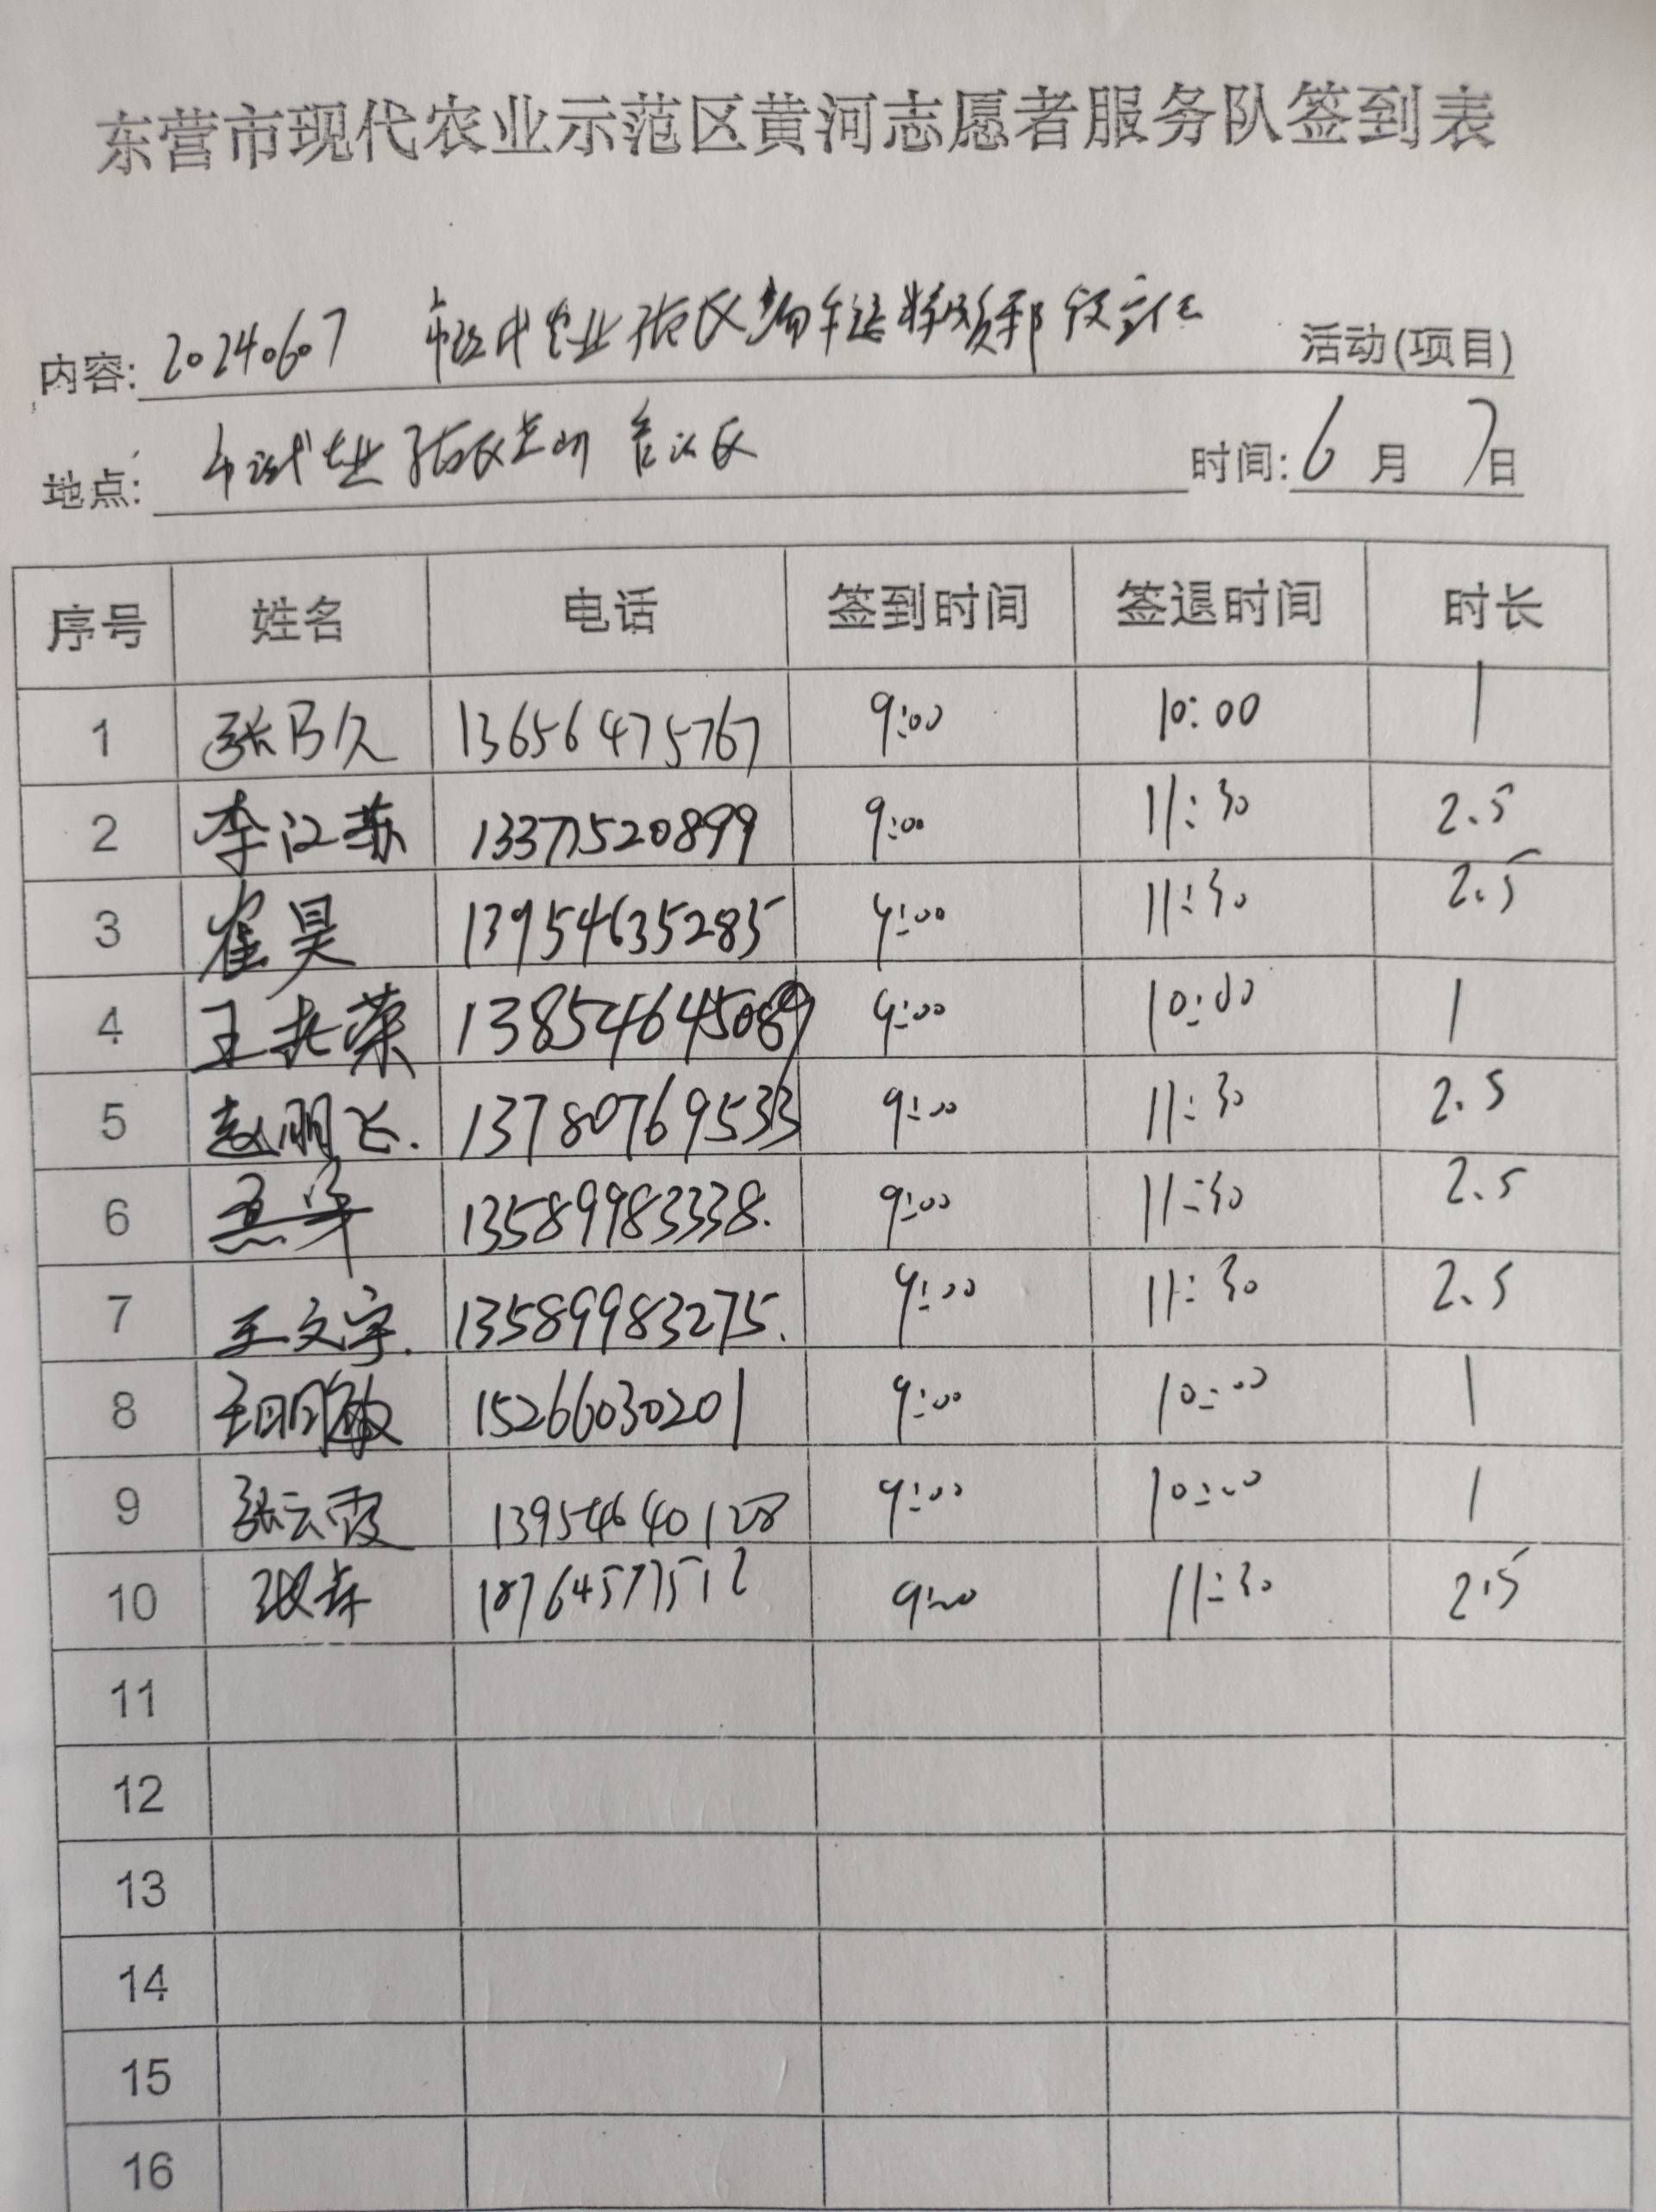 东营市现代农业示范区黄河志愿者服务队签到表
内容: 20240607 市现代农业示范区 活动(项目)
地点: 市现代农业示范区 时间: 6 月 7 日
序号 姓名 电话 签到时间 签退时间 时长
1 张乃久 13656475767 9:00 10:00 1
2 李江苏 13371520899 9:00 11:30 2.5
3 崔昊 13954635285 9:00 11:30 2.5
4 王荣 13854645089 9:00 10:00 1
5 赵鹏飞. 13780769533 9:00 11:30 2.5
6 13589983338. 9:00 11:30 2.5
7 王文宇. 13589983275. 9:00 11:30 2.5
8 王明敏 15266030201 9:00 10:00 1
9 张云霞 13954640128 9:00 10:00 1
10 18764577512 9:00 11:30 2.5
11
12
13
14
15
16